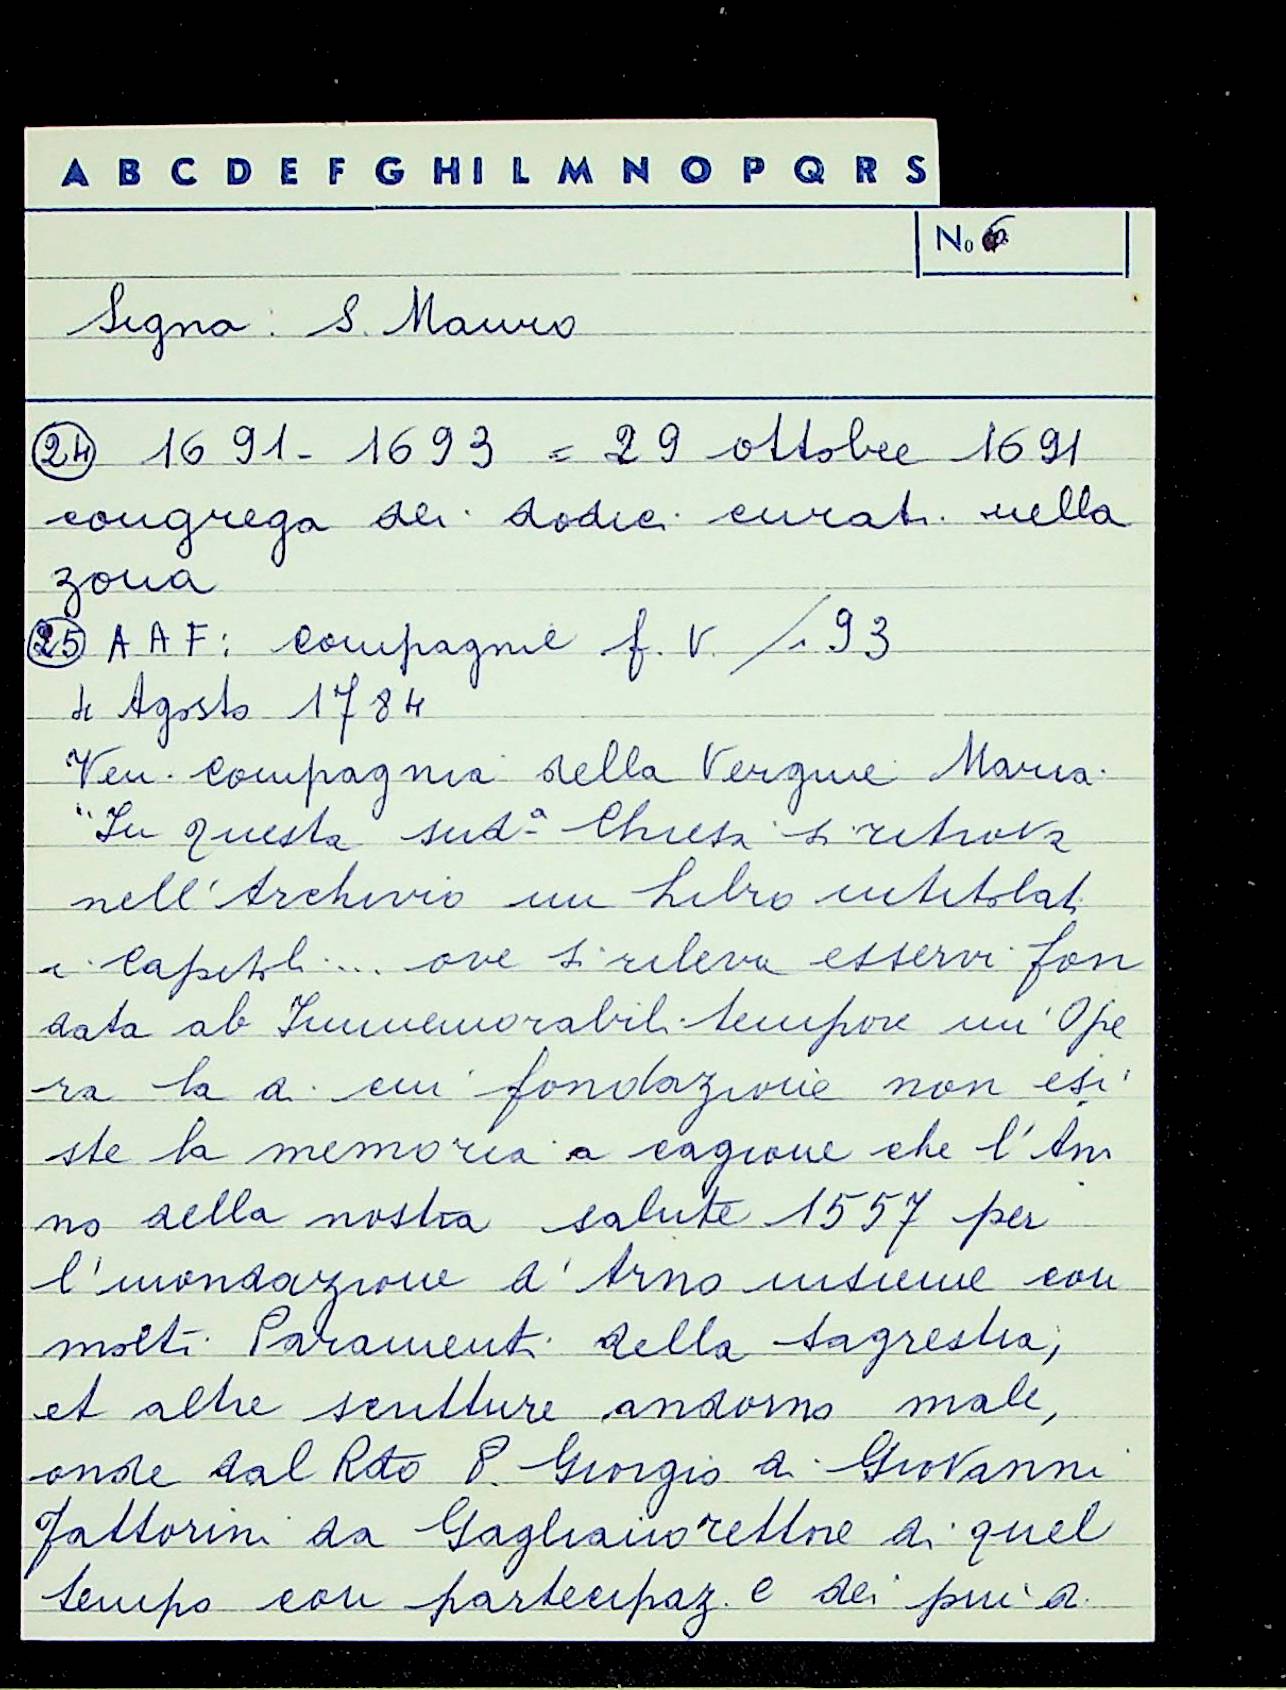 A B C D E F G H I L M N O P Q R S
No 6
Signa: S. Mauro
24 1691-1693 = 29 ottobre 1691
congrega dei dodici curati nella
zona
25 AAF: compagnie f. V. /. 93
4 Agosto 1784
Ven. compagnia della Vergine Maria
"In questa sud.a Chiesa si ritrova
nell'Archivio un Libro intitolato
i Capitoli ... ove si rileva esservi fon
data ab Immemorabili tempore un'Ope
ra la di cui fondazione non esi
ste la memoria a cagione che l'An
no della nostra salute 1557 per
l'inondazione d'Arno insieme con
molti Paramenti della sagrestia,
et altre scritture andorno male,
onde dal Rdo P. Giorgio di Giovanni
Fattorini da Gagliano rettore di quel
tempo con partecipaz. e dei più d.